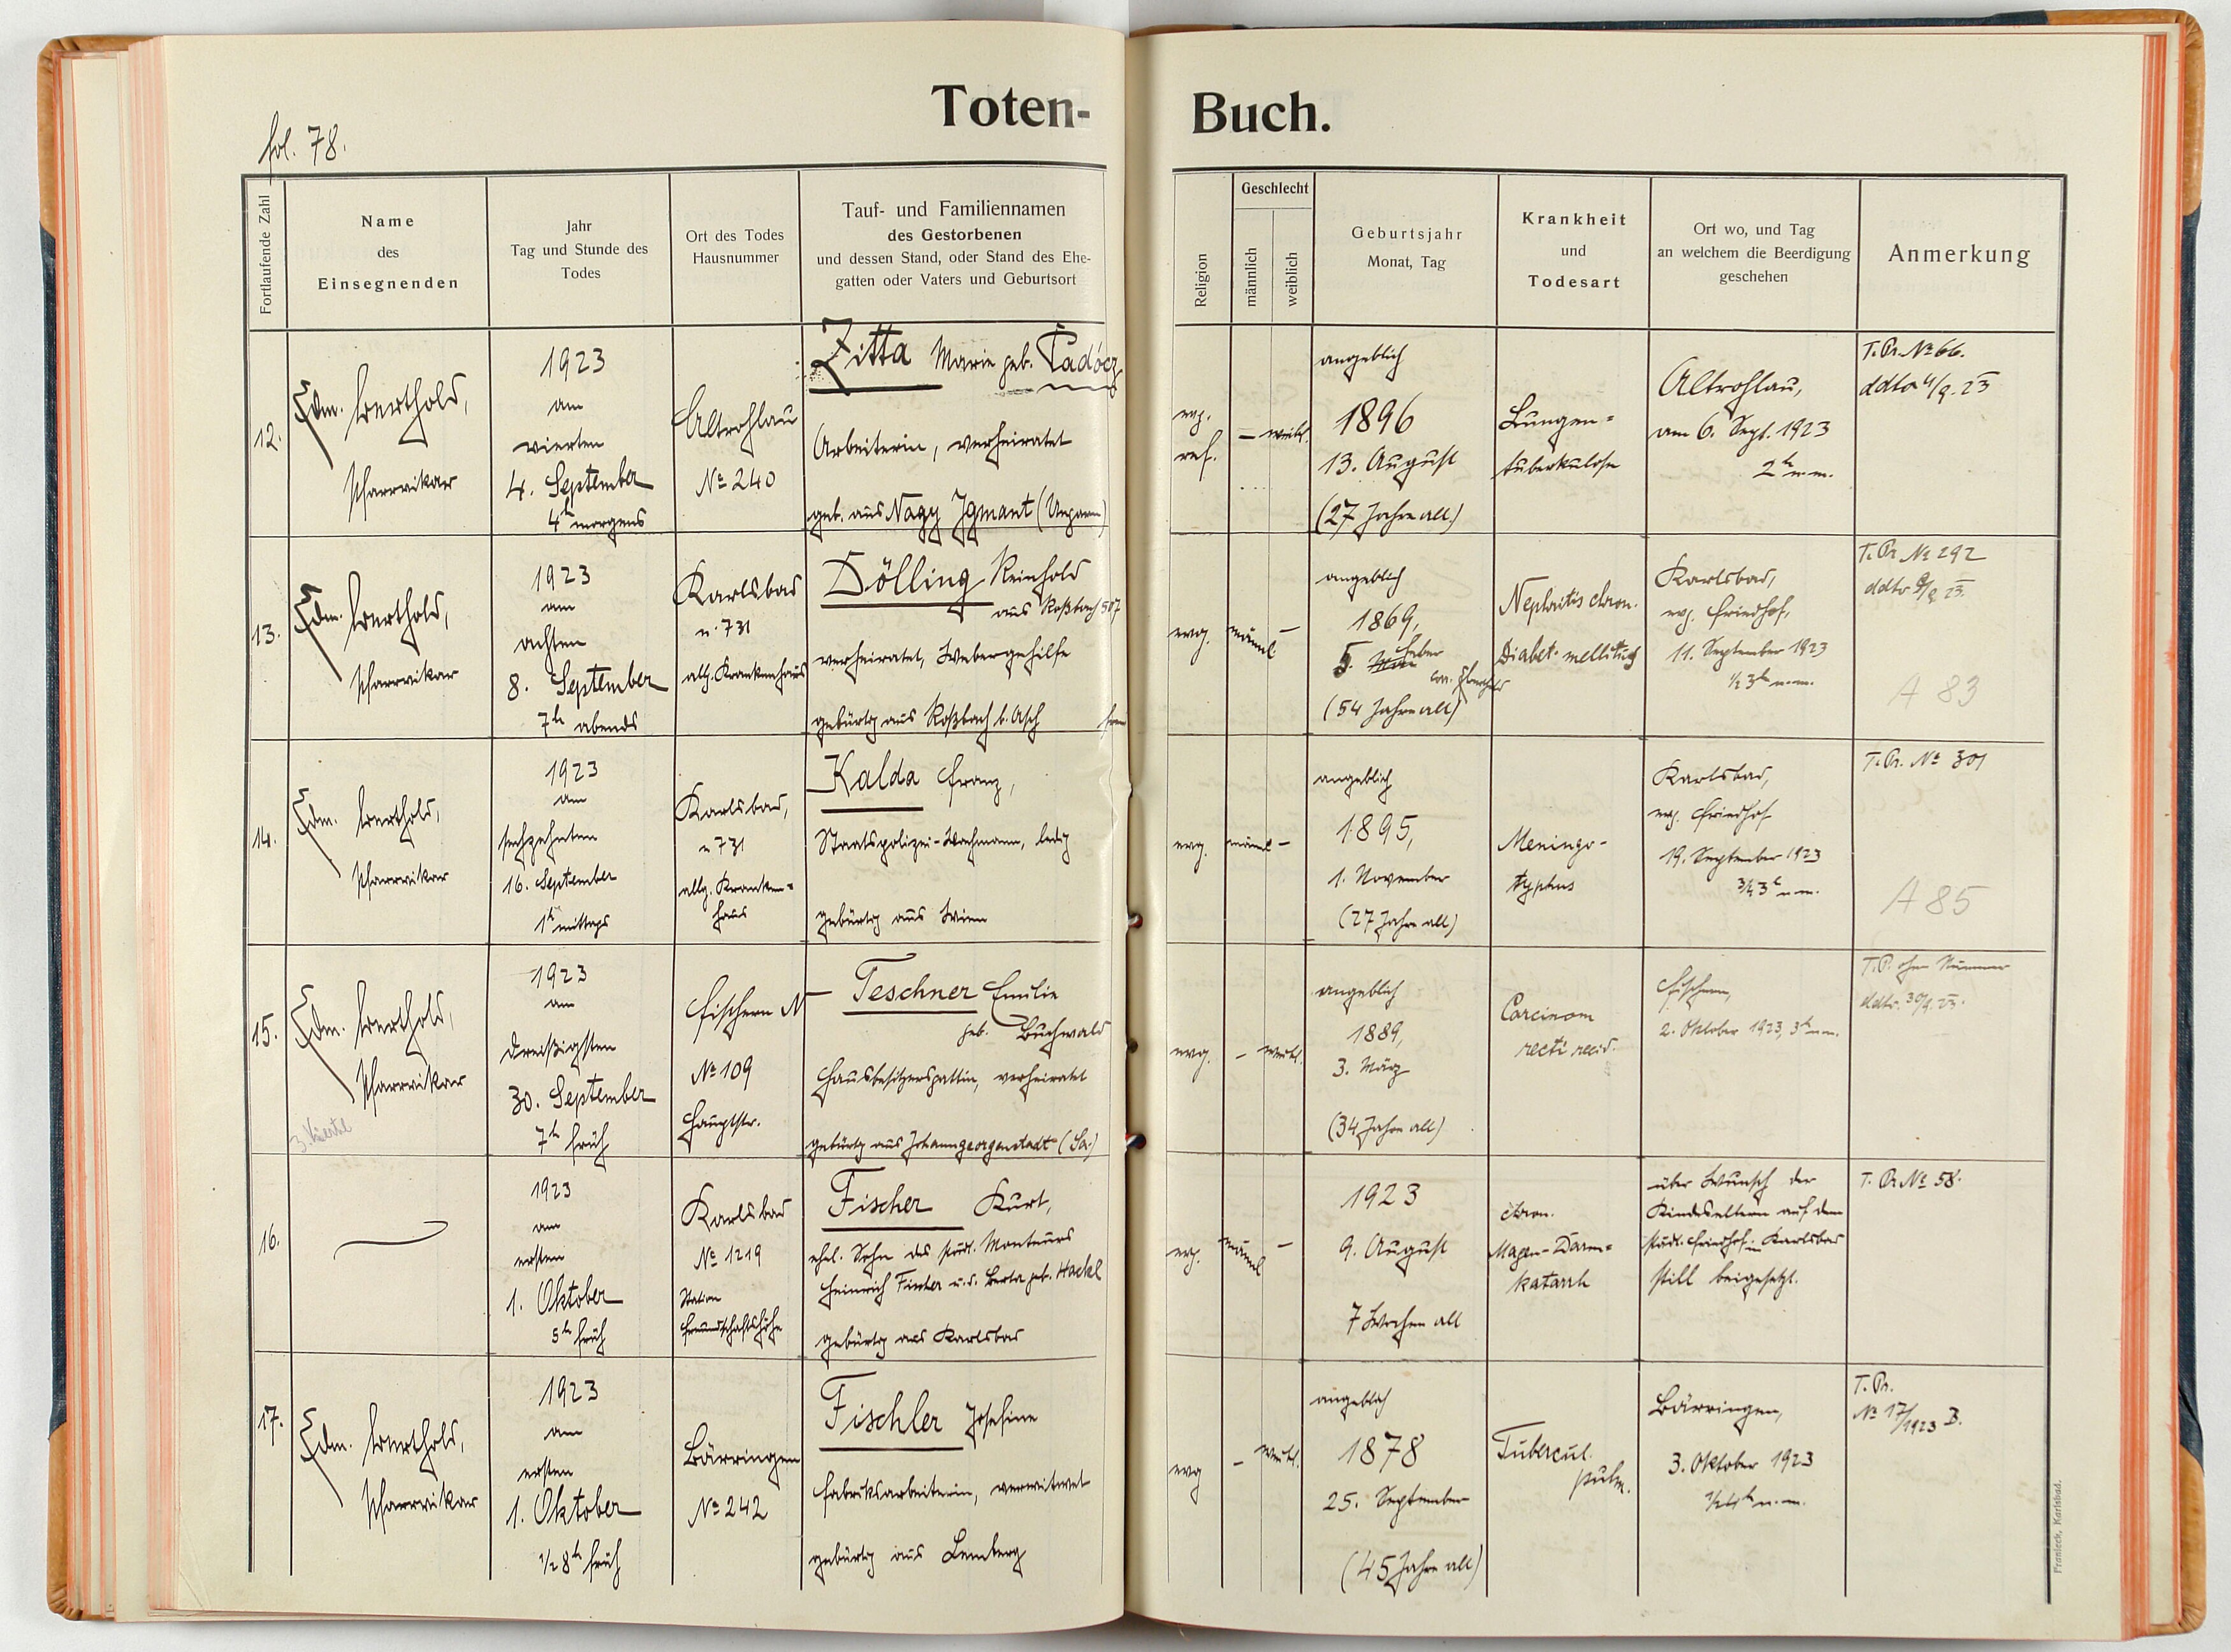 Toten-
Buch.
fol. 78.
Fortlaufende Zahl
Name
des
Einsegnenden
Jahr
Tag und Stunde des
Todes
Ort des Todes
Hausnummer
Tauf- und Familiennamen
des Gestorbenen
und dessen Stand, oder Stand des Ehe-
gatten oder Vaters und Geburtsort
Religion
Geschlecht
männlich
weiblich
Geburtsjahr
Monat, Tag
Krankheit
und
Todesart
Ort wo, und Tag
an welchem die Beerdigung
geschehen
Anmerkung
12.
Edm. Berthold,
Pfarrvikar
1923
am
vierten
4. September
4h morgens
Altrohlau
No 240
Zitta Marie geb. Padócz
Arbeiterin, verheiratet
geb. aus Nagy Igmant (Ungarn)
evg.
ref.
– weibl.
angeblich
1896
13. August
(27 Jahre alt)
Lungen=
tuberkulose
Altrohlau,
am 6. Sept. 1923
2h n.m.
T. Pr. No 66.
ddto 4/9. 23
13.
Edm. Berthold,
Pfarrvikar
1923
am
achten
8. September
7h abends
Karlsbad
n. 731
allg. Krankenhaus
Dölling Reinhold
aus Roßbach 507
verheiratet, Webergehilfe
gebürtig aus Roßbach b. Asch
evg.
männl –
angeblich
1869,
5. Feber
corr. Berthold
(54 Jahre alt)
Nephritis chron.
Diabet. mellitus
Karlsbad,
evg. Friedhof,
11. September 1923
½ 3h n.m.
T. Pr. No 292
ddto 8/9 23.
A 83
14.
Edm. Berthold,
Pfarrvikar
1923
am
sechzehnten
16. September
1h mittags
Karlsbad,
n 731
allg. Kranken=
haus
Kalda Franz,
Staatspolizei-Wachmann, ledig
gebürtig aus Wien
evg.
männl –
angeblich
1895,
1. November
(27 Jahre alt)
Meningo-
typhus
Karlsbad,
evg. Friedhof
19. September 1923
¾ 3h n.m.
T. Pr. No 301
A 85
15.
Edm. Berthold,
Pfarrvikar
1923
am
dreißigsten
30. September
7h früh
Fischern
No 109
Hauptstr.
Teschner Emilie
geb. Buchwald
Hausbesitzersgattin, verheiratet
gebürtig aus Johanngeorgenstadt (Sa.)
evg.
– weibl.
angeblich
1889,
3. März
(34 Jahre alt)
Carcinom
recti recid.
Fischern,
2. Oktober 1923, 3h n.m.
T. P. ohne Nummer
ddto. 30/9. 23.
16.
1923
am
ersten
1. Oktober
5h früh
Karlsbad
No 1219
Station
Freundschaftshöhe
Fischer Kurt,
ehel. Sohn des städt. Monteurs
Heinrich Fischer u. d. Berta geb. Hackl
gebürtig aus Karlsbad
evg.
männl –
1923
9. August
7 Wochen alt
chron.
Magen-Darm=
katarrh
über Wunsch der
Kindeseltern auf dem
städt. Friedhof in Karlsbad
still beigesetzt.
T. Pr. No 58.
17.
Edm. Berthold,
Pfarrvikar
1923
am
ersten
1. Oktober
½ 8h früh
Bärringen
No 242
Fischler Josefine
Fabriksarbeiterin, verwitwet
gebürtig aus Lemberg
evg
– weibl.
angeblich
1878
25. September
(45 Jahre alt)
Tubercul.
pulm.
Bärringen,
3. Oktober 1923
½ 4h n.m.
T. Pr.
No 17/1923 B.
Franieck, Karlsbad.